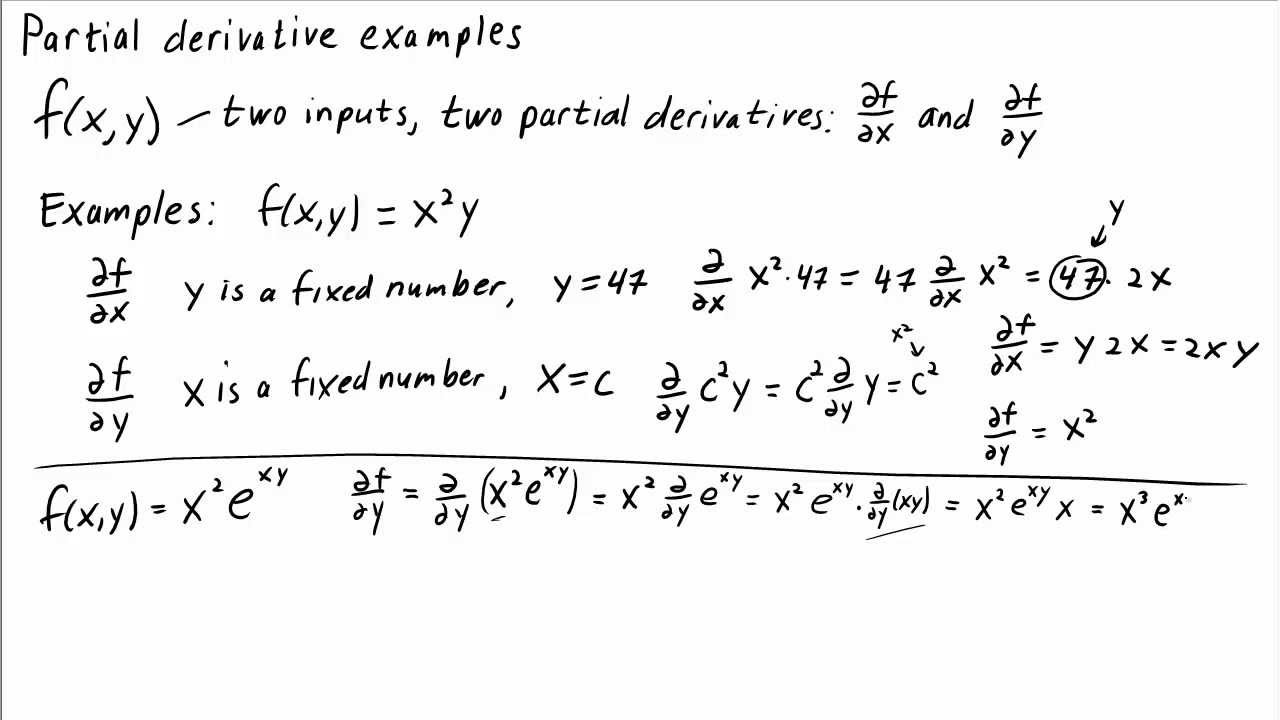 Partial derivative examples
f(x,y) — two inputs, two partial derivatives: ∂f/∂x and ∂f/∂y
Examples: f(x,y) = x²y
y
∂f/∂x y is a fixed number, y=47 ∂/∂x x²·47 = 47 ∂/∂x x² = 47·2x
∂f/∂x = y2x = 2xy
x²
∂f/∂y x is a fixed number, x=c ∂/∂y c²y = c² ∂/∂y y = c²
∂f/∂y = x²
f(x,y) = x²e^xy ∂f/∂y = ∂/∂y (x²e^xy) = x² ∂/∂y e^xy = x²e^xy · ∂/∂y (xy) = x²e^xy x = x³e^x